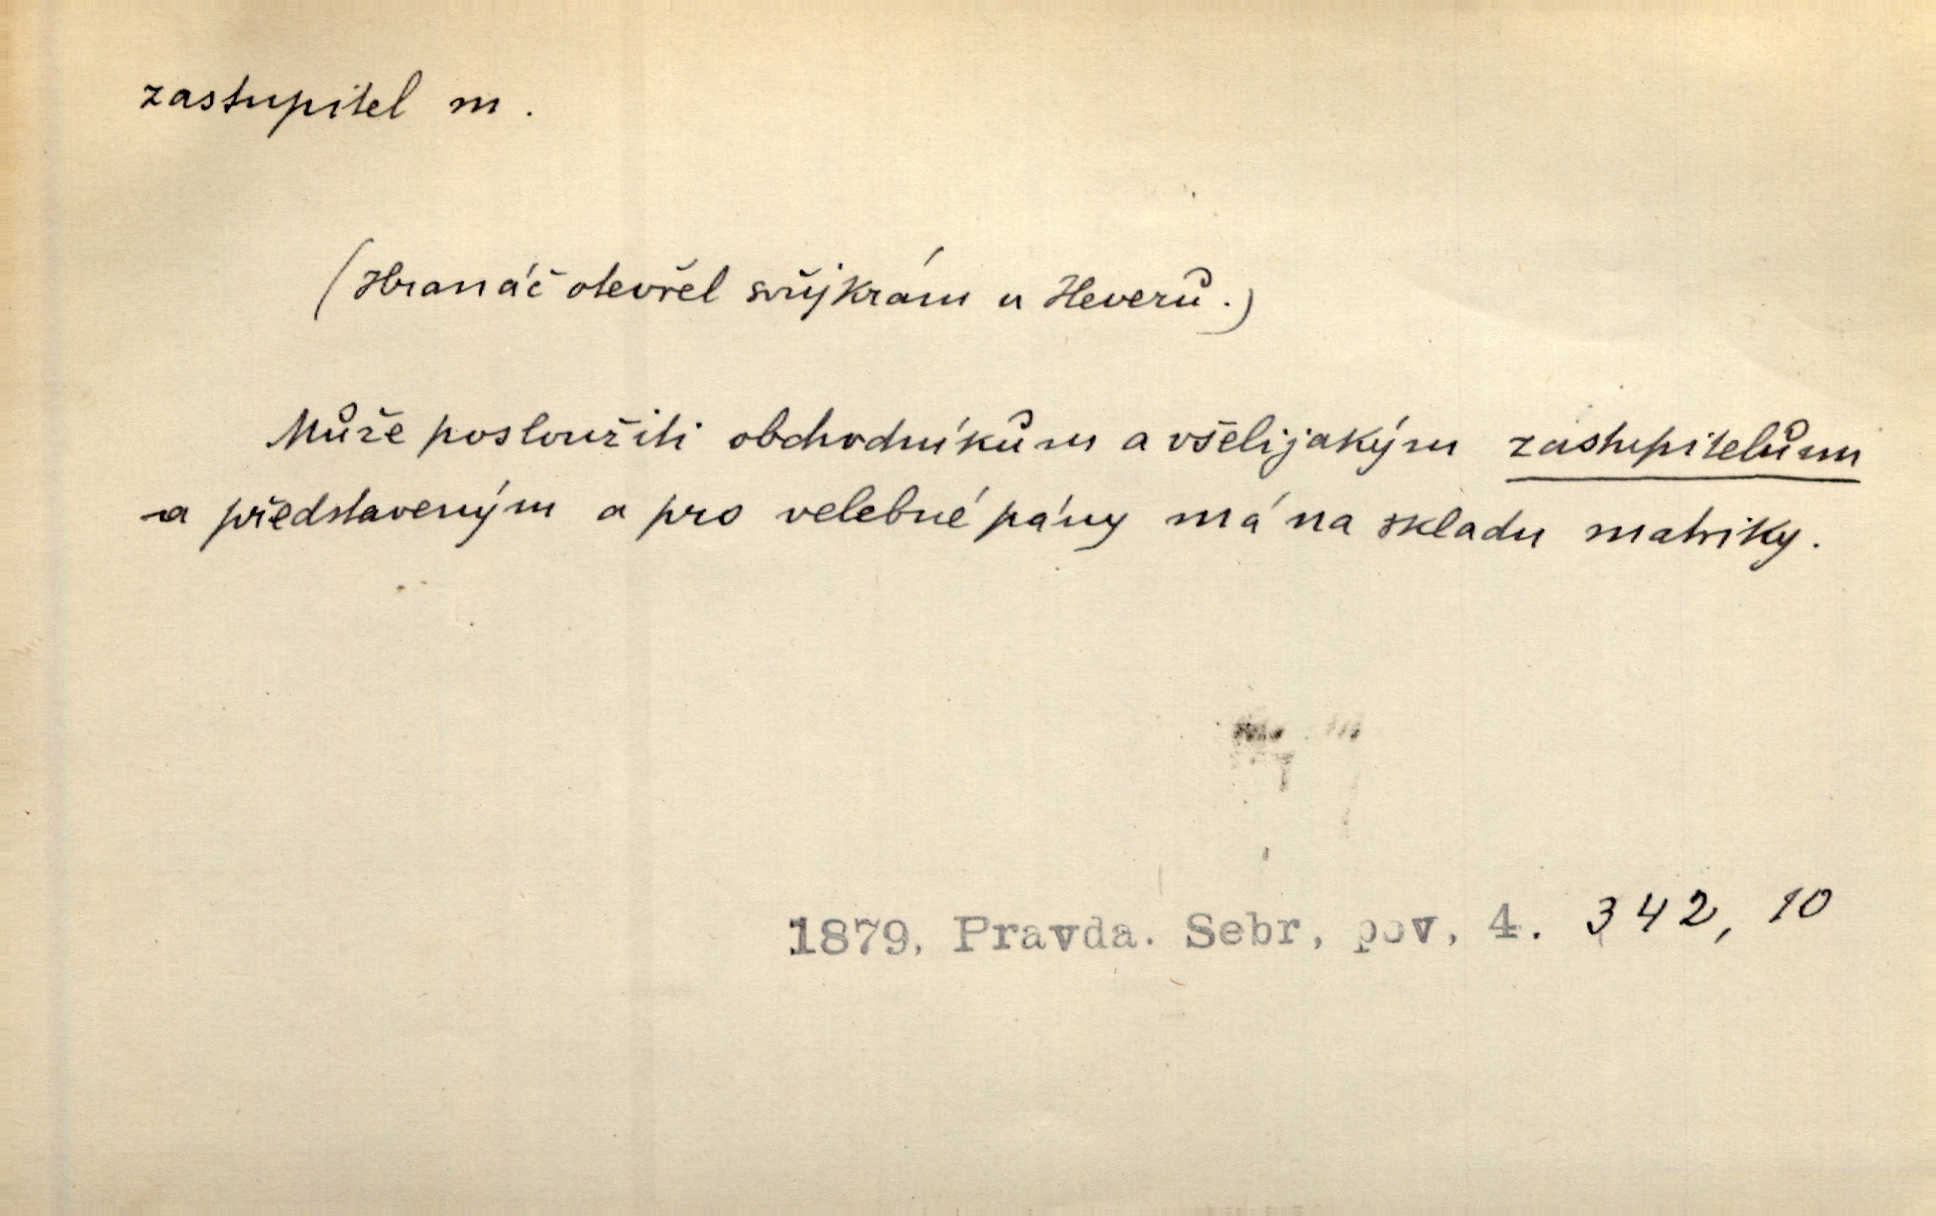 zastupitel m.
(Hranáč otevřel svůj krám u Heverů.)
Může posloužiti obchodníkům a všelijakým zastupitelům
a představeným a pro velebné pány má na skladu matriky.
1879, Pravda. Sebr, pov, 4. 342, 10